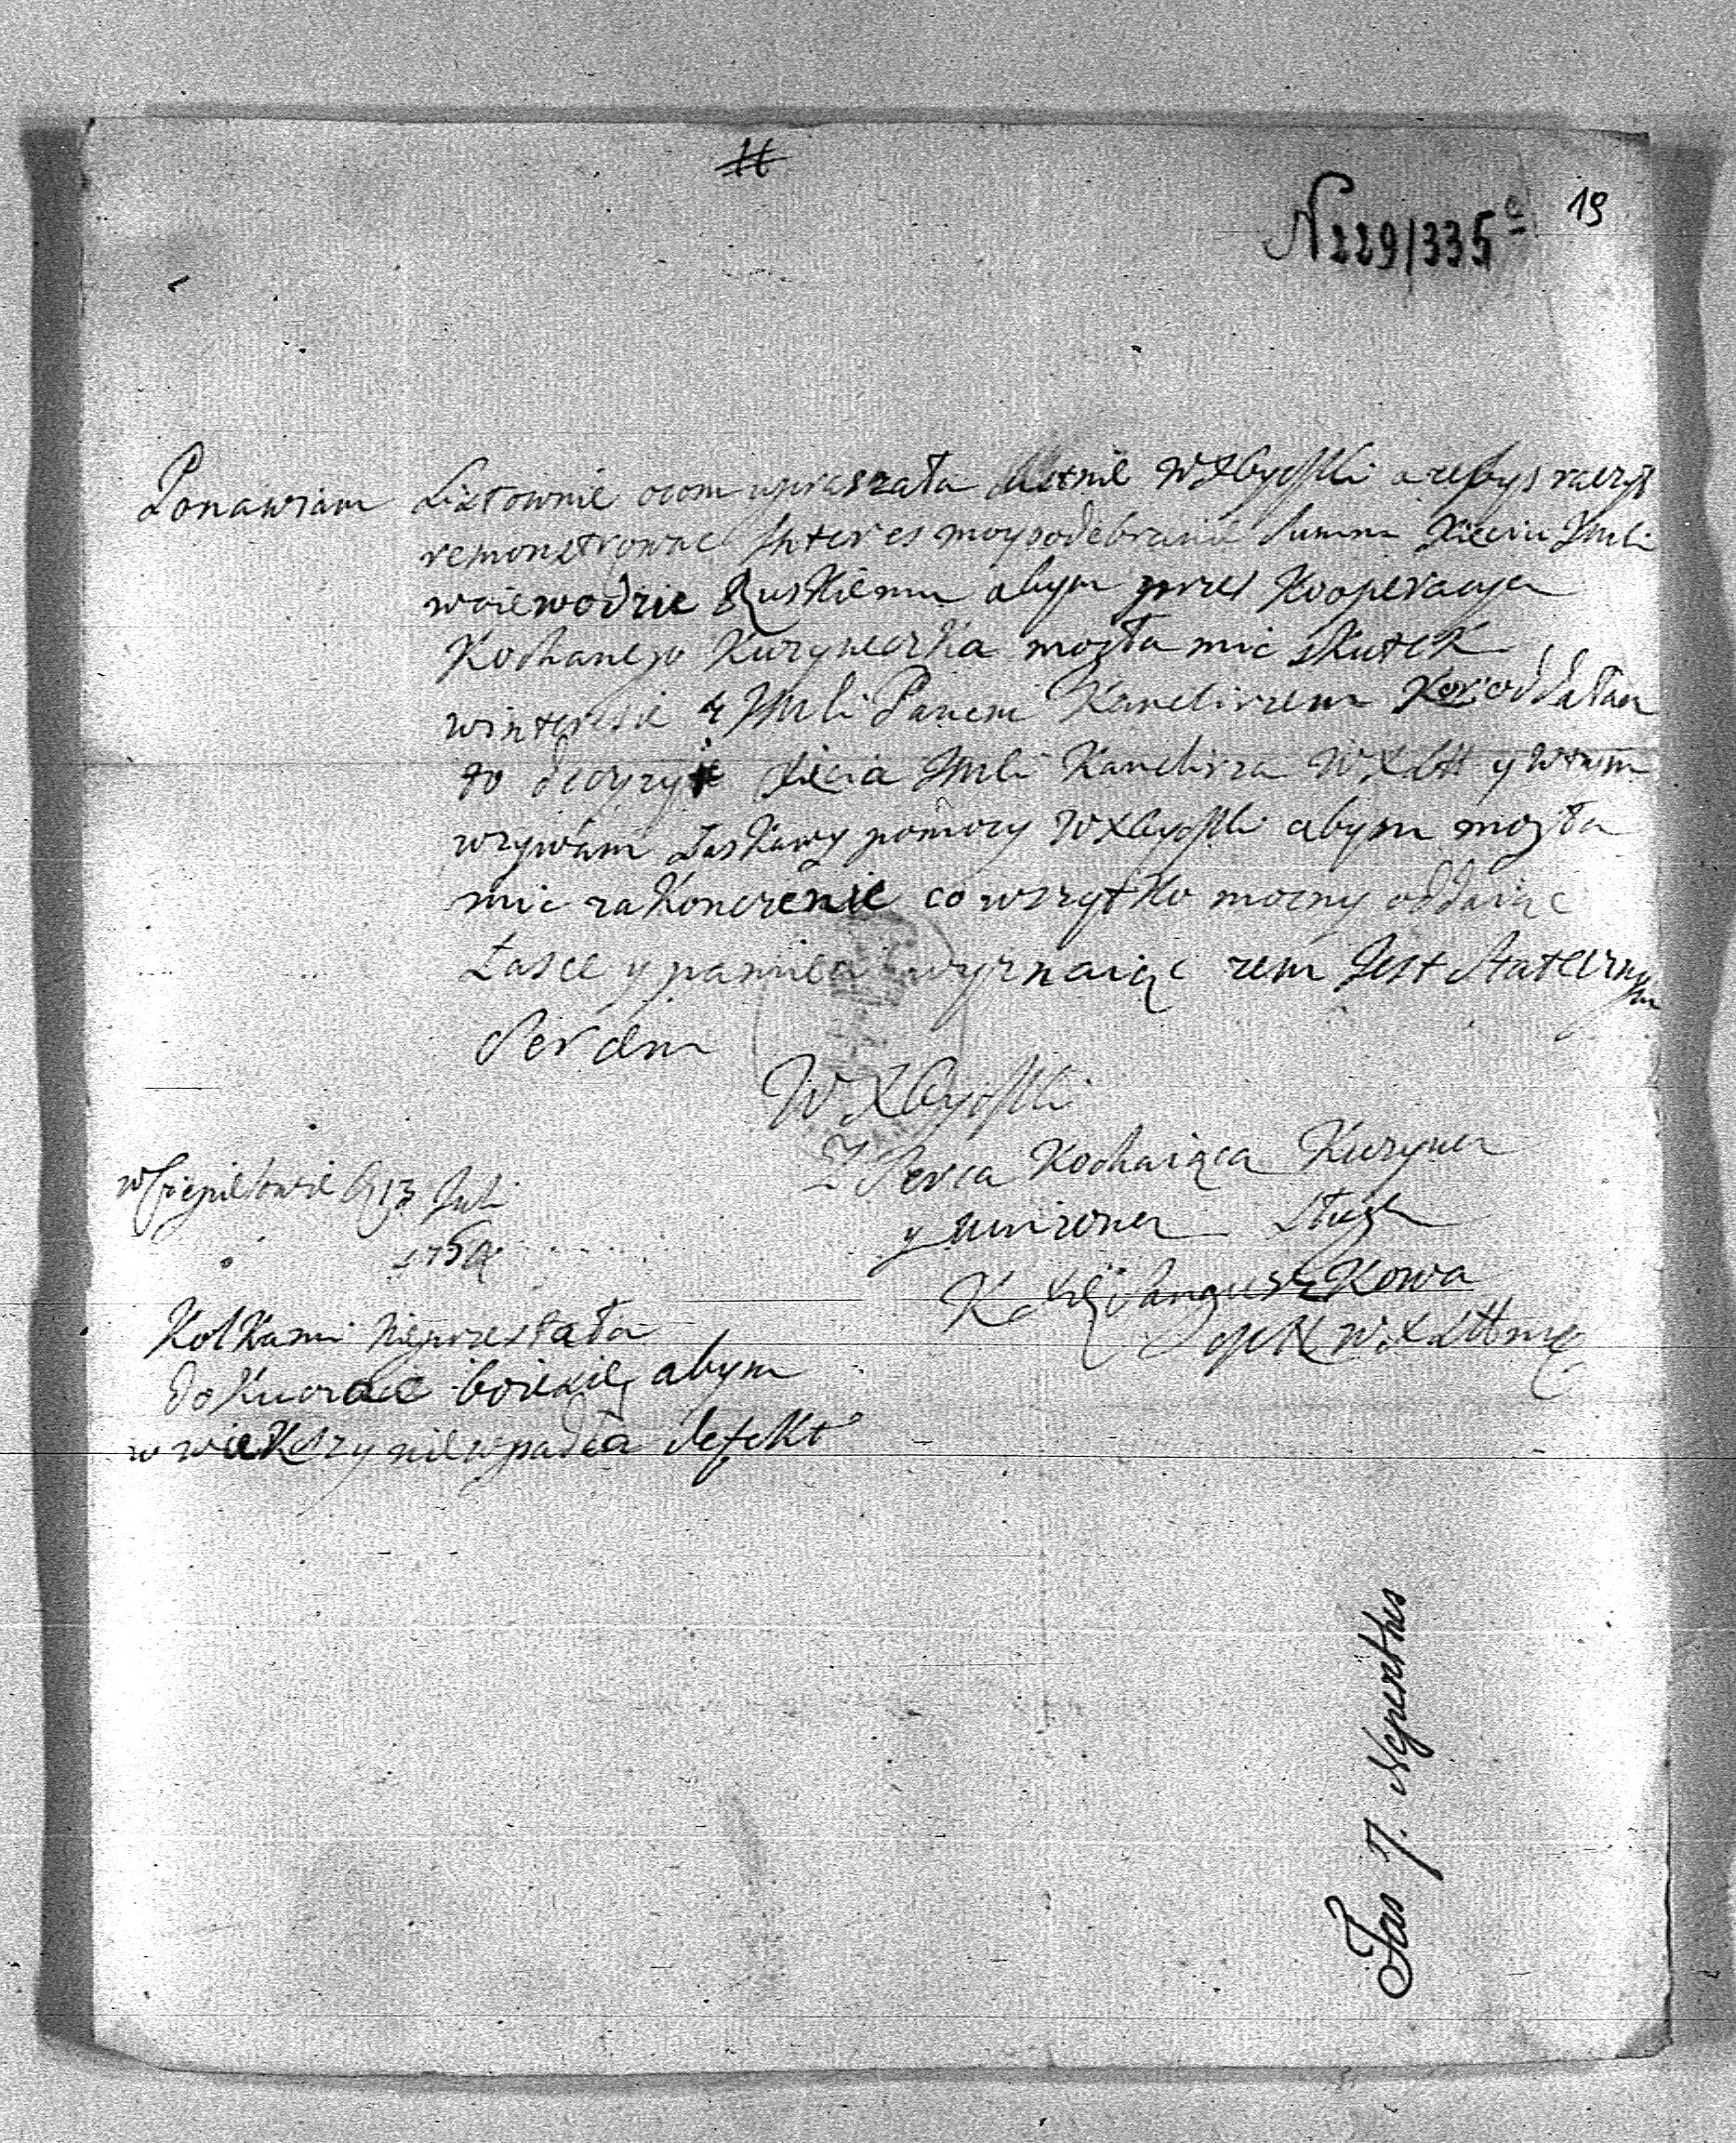 H
N 229/335 c
19
Ponawiam Listownie ocom upraszała Ustnie WXbycMMci azebys raczył
remonstrowac Interes moy podebrania Summ Xieciu Jmci
woiewodzie Ruskiemu abym przes Kooperacyą
Kochanego Kuzyneczka mogła mic skutek
winteresie z Jmci Panem Kanclirzem Kor: oddałam
to decyzyi Xiecia Jmci Kanclirza WXLitt y wtym
wzywam Łaskawy pomocy WXbycMMci abym mogła
mic zakonczenie co wszytko mocny oddaiąc
Łasce y pamiеci wyznaiąc zem Jest Statecznym
Sercem
WXbycMMci
Z Serca Kochaiąca Kuzyna
y unizona Sługa
K Xię Sanguszkowa
w Ciepielowie D 13 Juli
1750
Kolkami nieprzestała
dokuczac boiexię abym
w wiekszy niewpadła defekt
Fas 7. Nepenthes